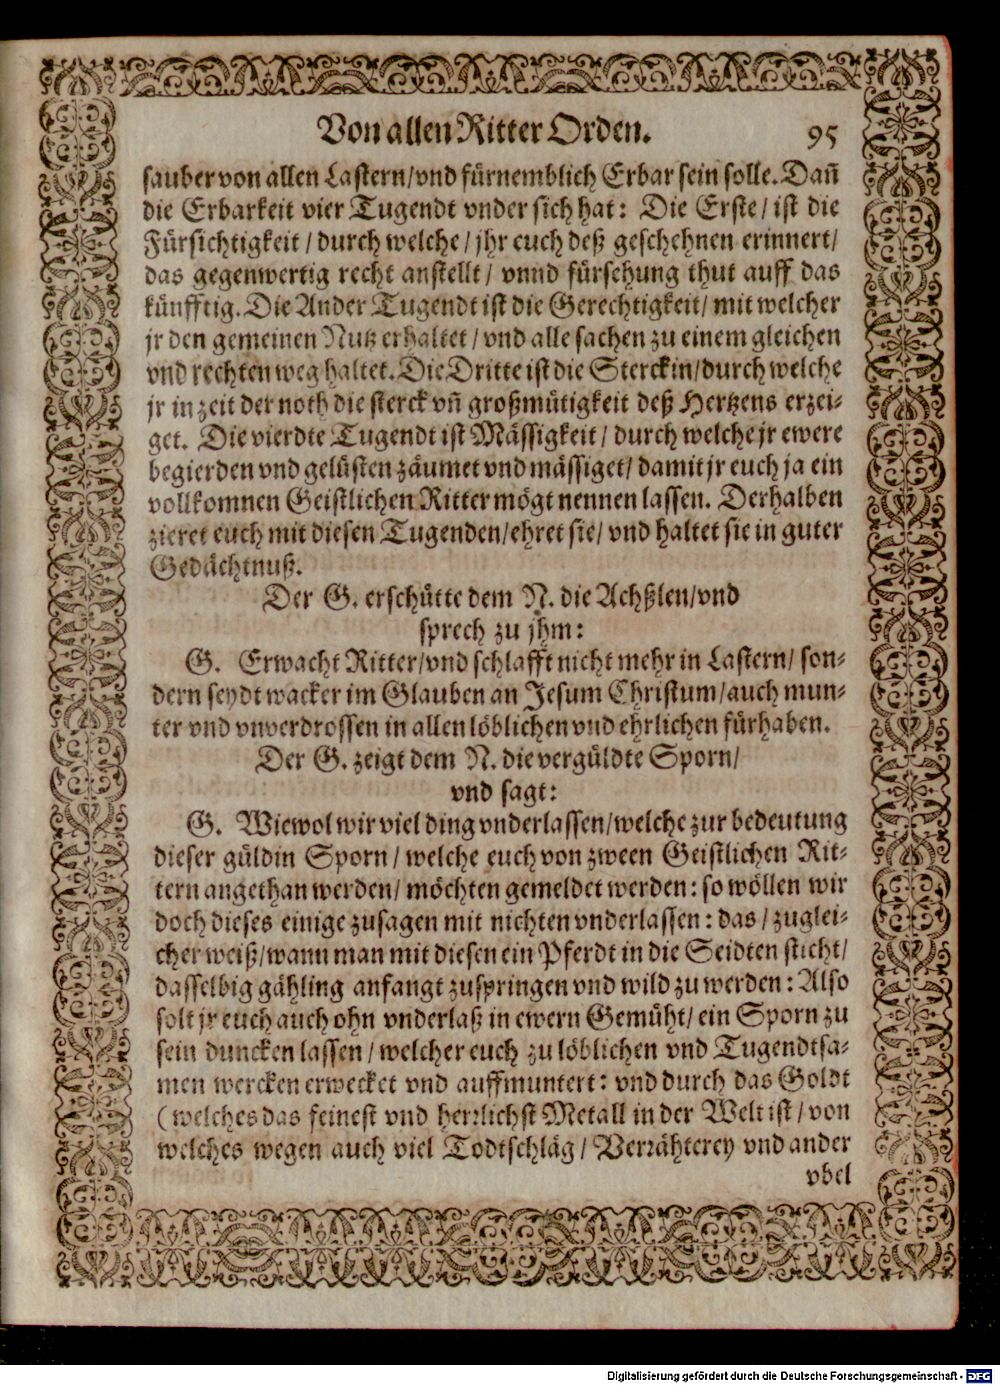 Von allen Ritter Orden. 95
sauber von allen Lastern/vnd fürnemblich Erbar sein solle. Dañ
die Erbarkeit vier Tugendt vnder sich hat: Die Erste/ ist die
Fürsichtigkeit/durch welche/jhr euch deß geschehnen erinnert/
das gegenwertig recht anstellt/ vnnd fürsehung thut auff das
künfftig. Die Ander Tugendt ist die Gerechtigkeit/ mit welcher
jr den gemeinen Nutz erhaltet/vnd alle sachen zu einem gleichen
vnd rechten weg haltet. Die Dritte ist die Sterckin/durch welche
jr in zeit der noth die sterck vñ großmütigkeit deß Hertzens erzei-
get. Die vierdte Tugendt ist Mässigkeit/ durch welche jr ewere
begierden vnd gelüsten zäumet vnd mässiget/ damit jr euch ja ein
vollkomnen Geistlichen Ritter mögt nennen lassen. Derhalben
zieret euch mit diesen Tugenden/ehret sie/ vnd haltet sie in guter
Gedächtnuß.
Der G. erschütte dem N. die Achßlen/vnd
sprech zu jhm:
G. Erwacht Ritter/vnd schlafft nicht mehr in Lastern/ son-
dern seydt wacker im Glauben an Jesum Christum/auch mun-
ter vnd vnverdrossen in allen löblichen vnd ehrlichen fürhaben.
Der G. zeigt dem N. die vergüldte Sporn/
vnd sagt:
G. Wiewol wir viel ding vnderlassen/welche zur bedeutung
dieser güldin Sporn/welche euch von zween Geistlichen Rit-
tern angethan werden/ möchten gemeldet werden: so wöllen wir
doch dieses einige zusagen mit nichten vnderlassen: das/zuglei-
cher weiß/wann man mit diesen ein Pferdt in die Seidten sticht/
dasselbig gähling anfangt zuspringen vnd wild zu werden: Also
solt jr euch auch ohn vnderlaß in ewern Gemüht/ein Sporn zu
sein duncken lassen/welcher euch zu löblichen vnd Tugendtsa-
men wercken erwecket vnd auffmuntert: vnd durch das Goldt
(welches das feinest vnd herrlichst Metall in der Welt ist/von
welches wegen auch viel Todtschläg/Verrähterey vnd ander
vbel
Digitalisierung gefördert durch die Deutsche Forschungsgemeinschaft - DFG